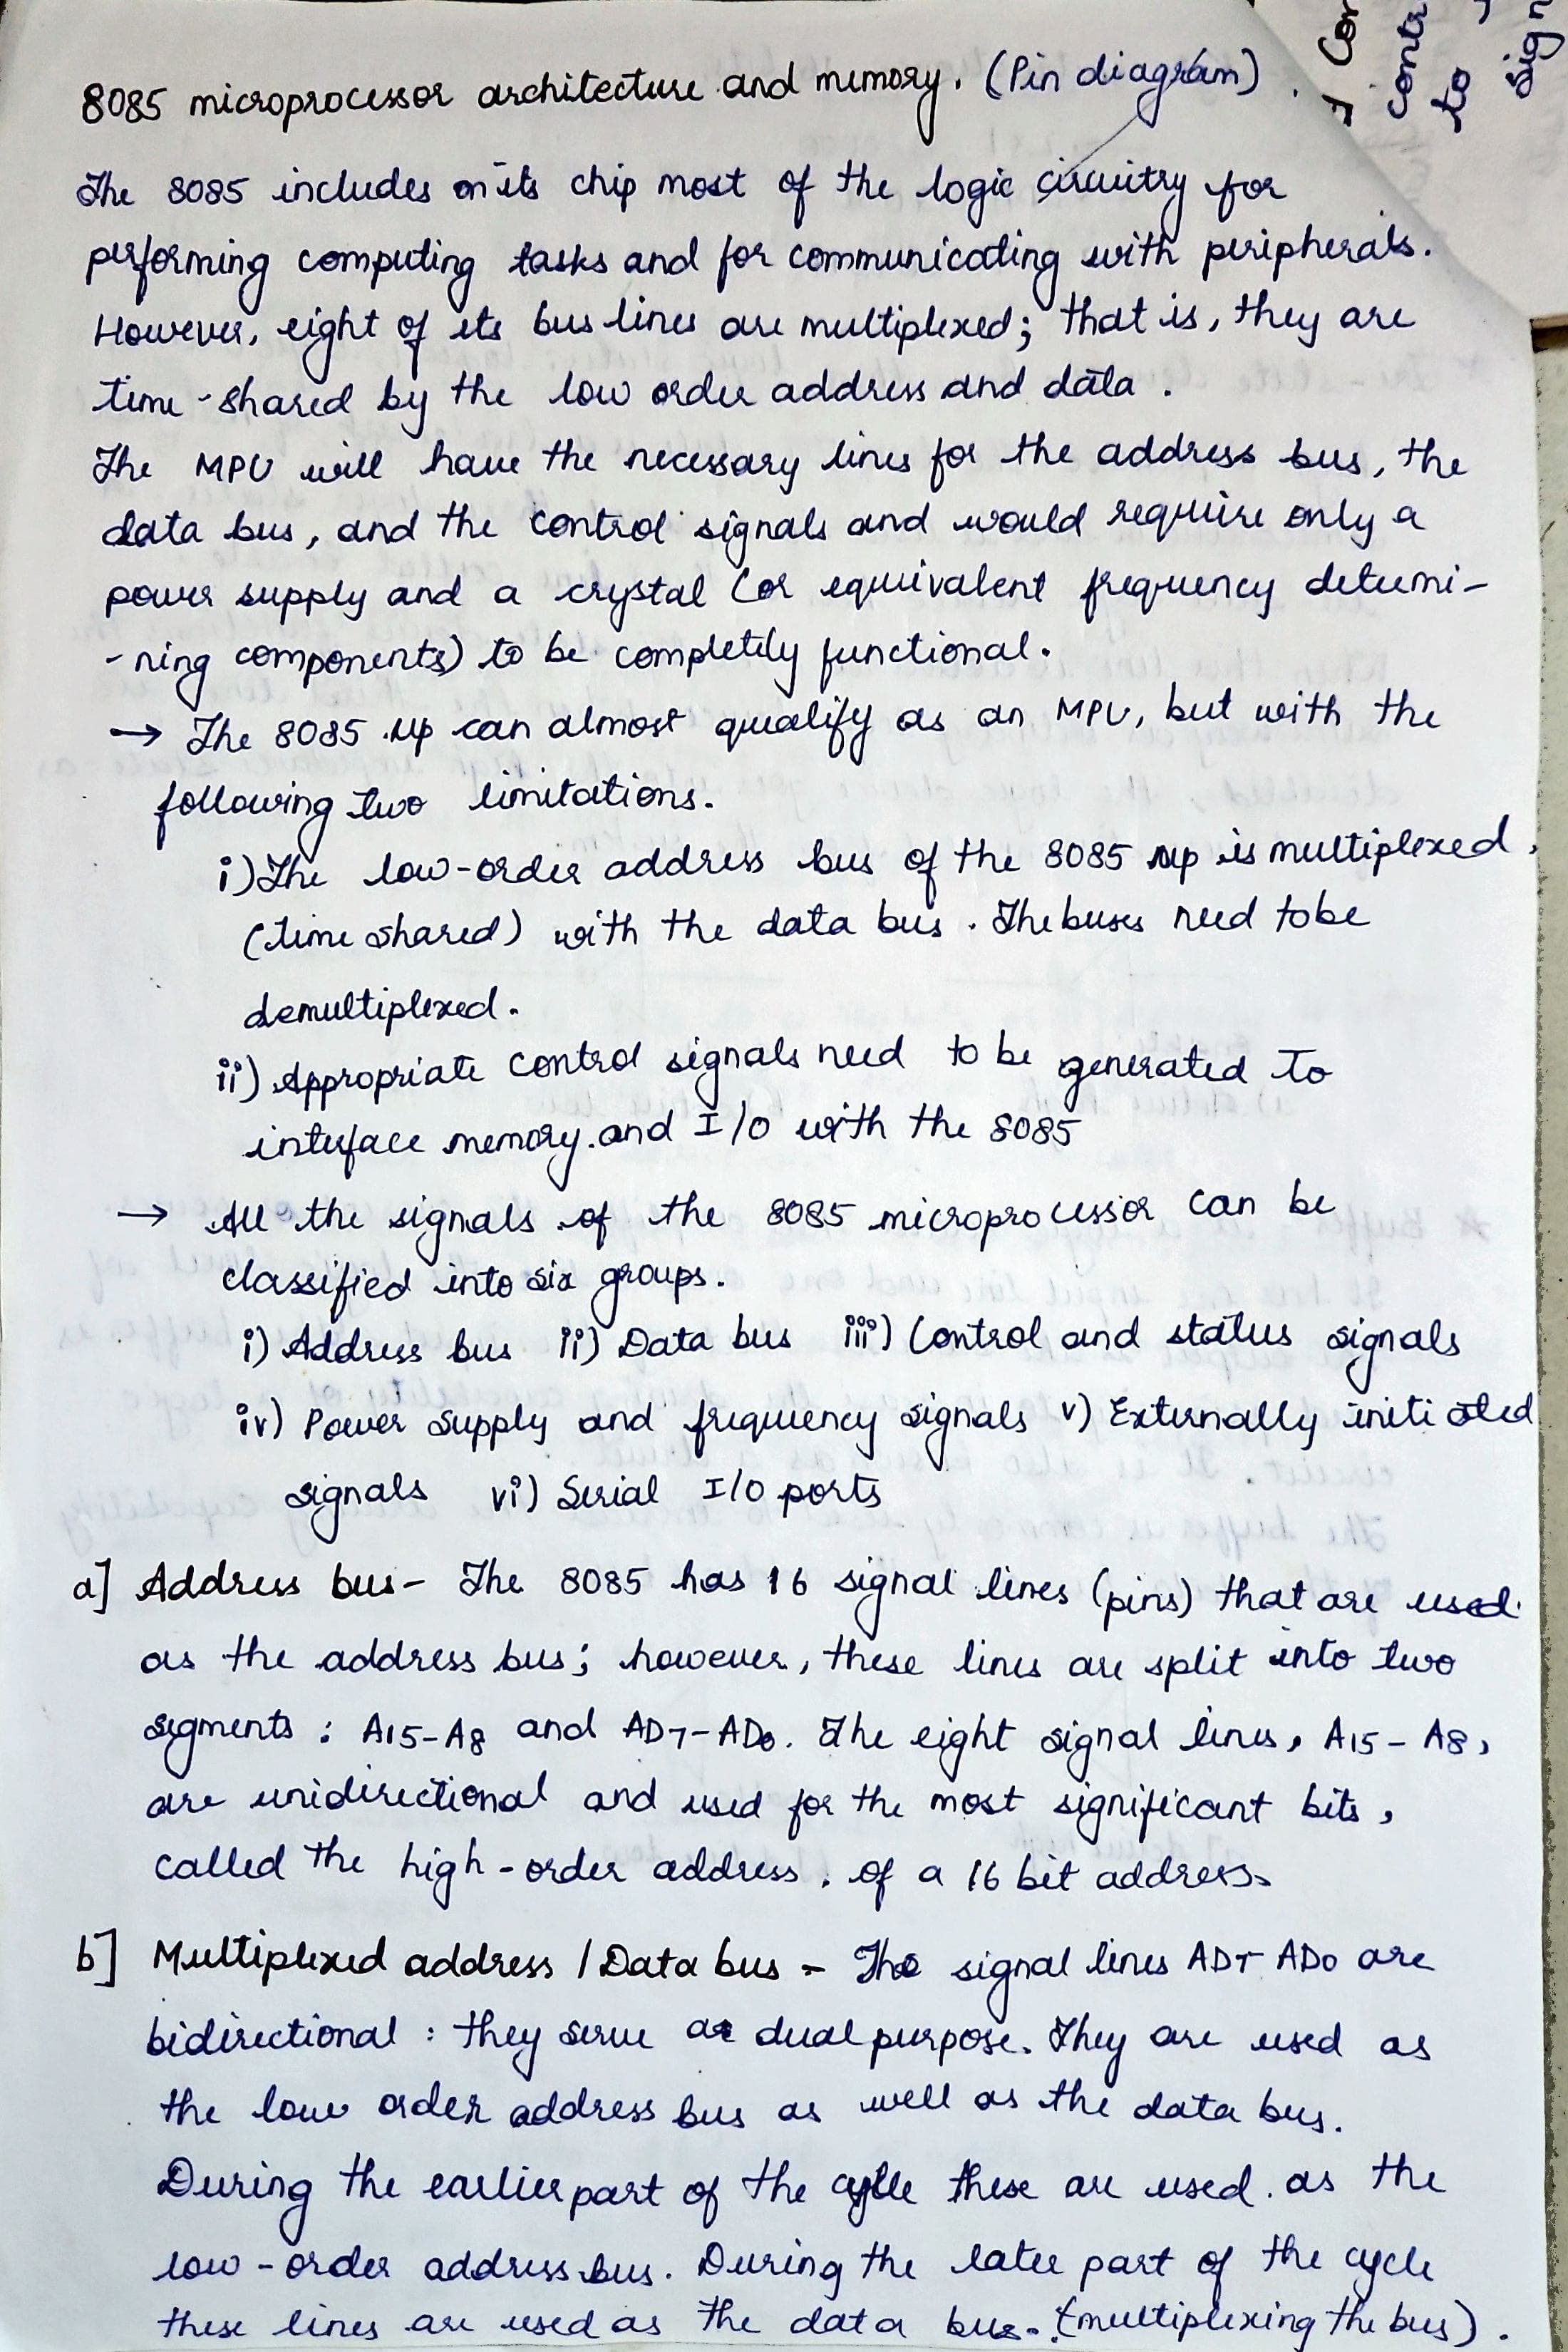 8085 microprocessor architecture and memory. (Pin diagram)
The 8085 includes on its chip most of the logic circuitry for
performing computing tasks and for communicating with peripherals.
However, eight of its bus lines are multiplexed; that is, they are
time-shared by the low order address and data.
The MPU will have the necessary lines for the address bus, the
data bus, and the control signals and would require only a
power supply and a crystal (or equivalent frequency determi-
-ning components) to be completely functional.
→ The 8085 μp can almost qualify as an MPU, but with the
following two limitations.
i) The low-order address bus of the 8085 μp is multiplexed
(time shared) with the data bus. The buses need to be
demultiplexed.
ii) Appropriate control signals need to be generated to
interface memory and I/O with the 8085
→ All the signals of the 8085 microprocessor can be
classified into six groups.
i) Address bus ii) Data bus iii) Control and status signals
iv) Power supply and frequency signals v) Externally initiated
signals vi) Serial I/O ports
a] Address bus - The 8085 has 16 signal lines (pins) that are used
as the address bus; however, these lines are split into two
segments : A15-A8 and AD7-AD0. The eight signal lines, A15-A8,
are unidirectional and used for the most significant bits,
called the high-order address, of a 16 bit address.
b] Multiplexed address / Data bus - The signal lines AD7-AD0 are
bidirectional : they serve a dual purpose. They are used as
the low order address bus as well as the data bus.
During the earlier part of the cycle these are used as the
low-order address bus. During the later part of the cycle
these lines are used as the data bus. (multiplexing the bus).
contr
to
sign